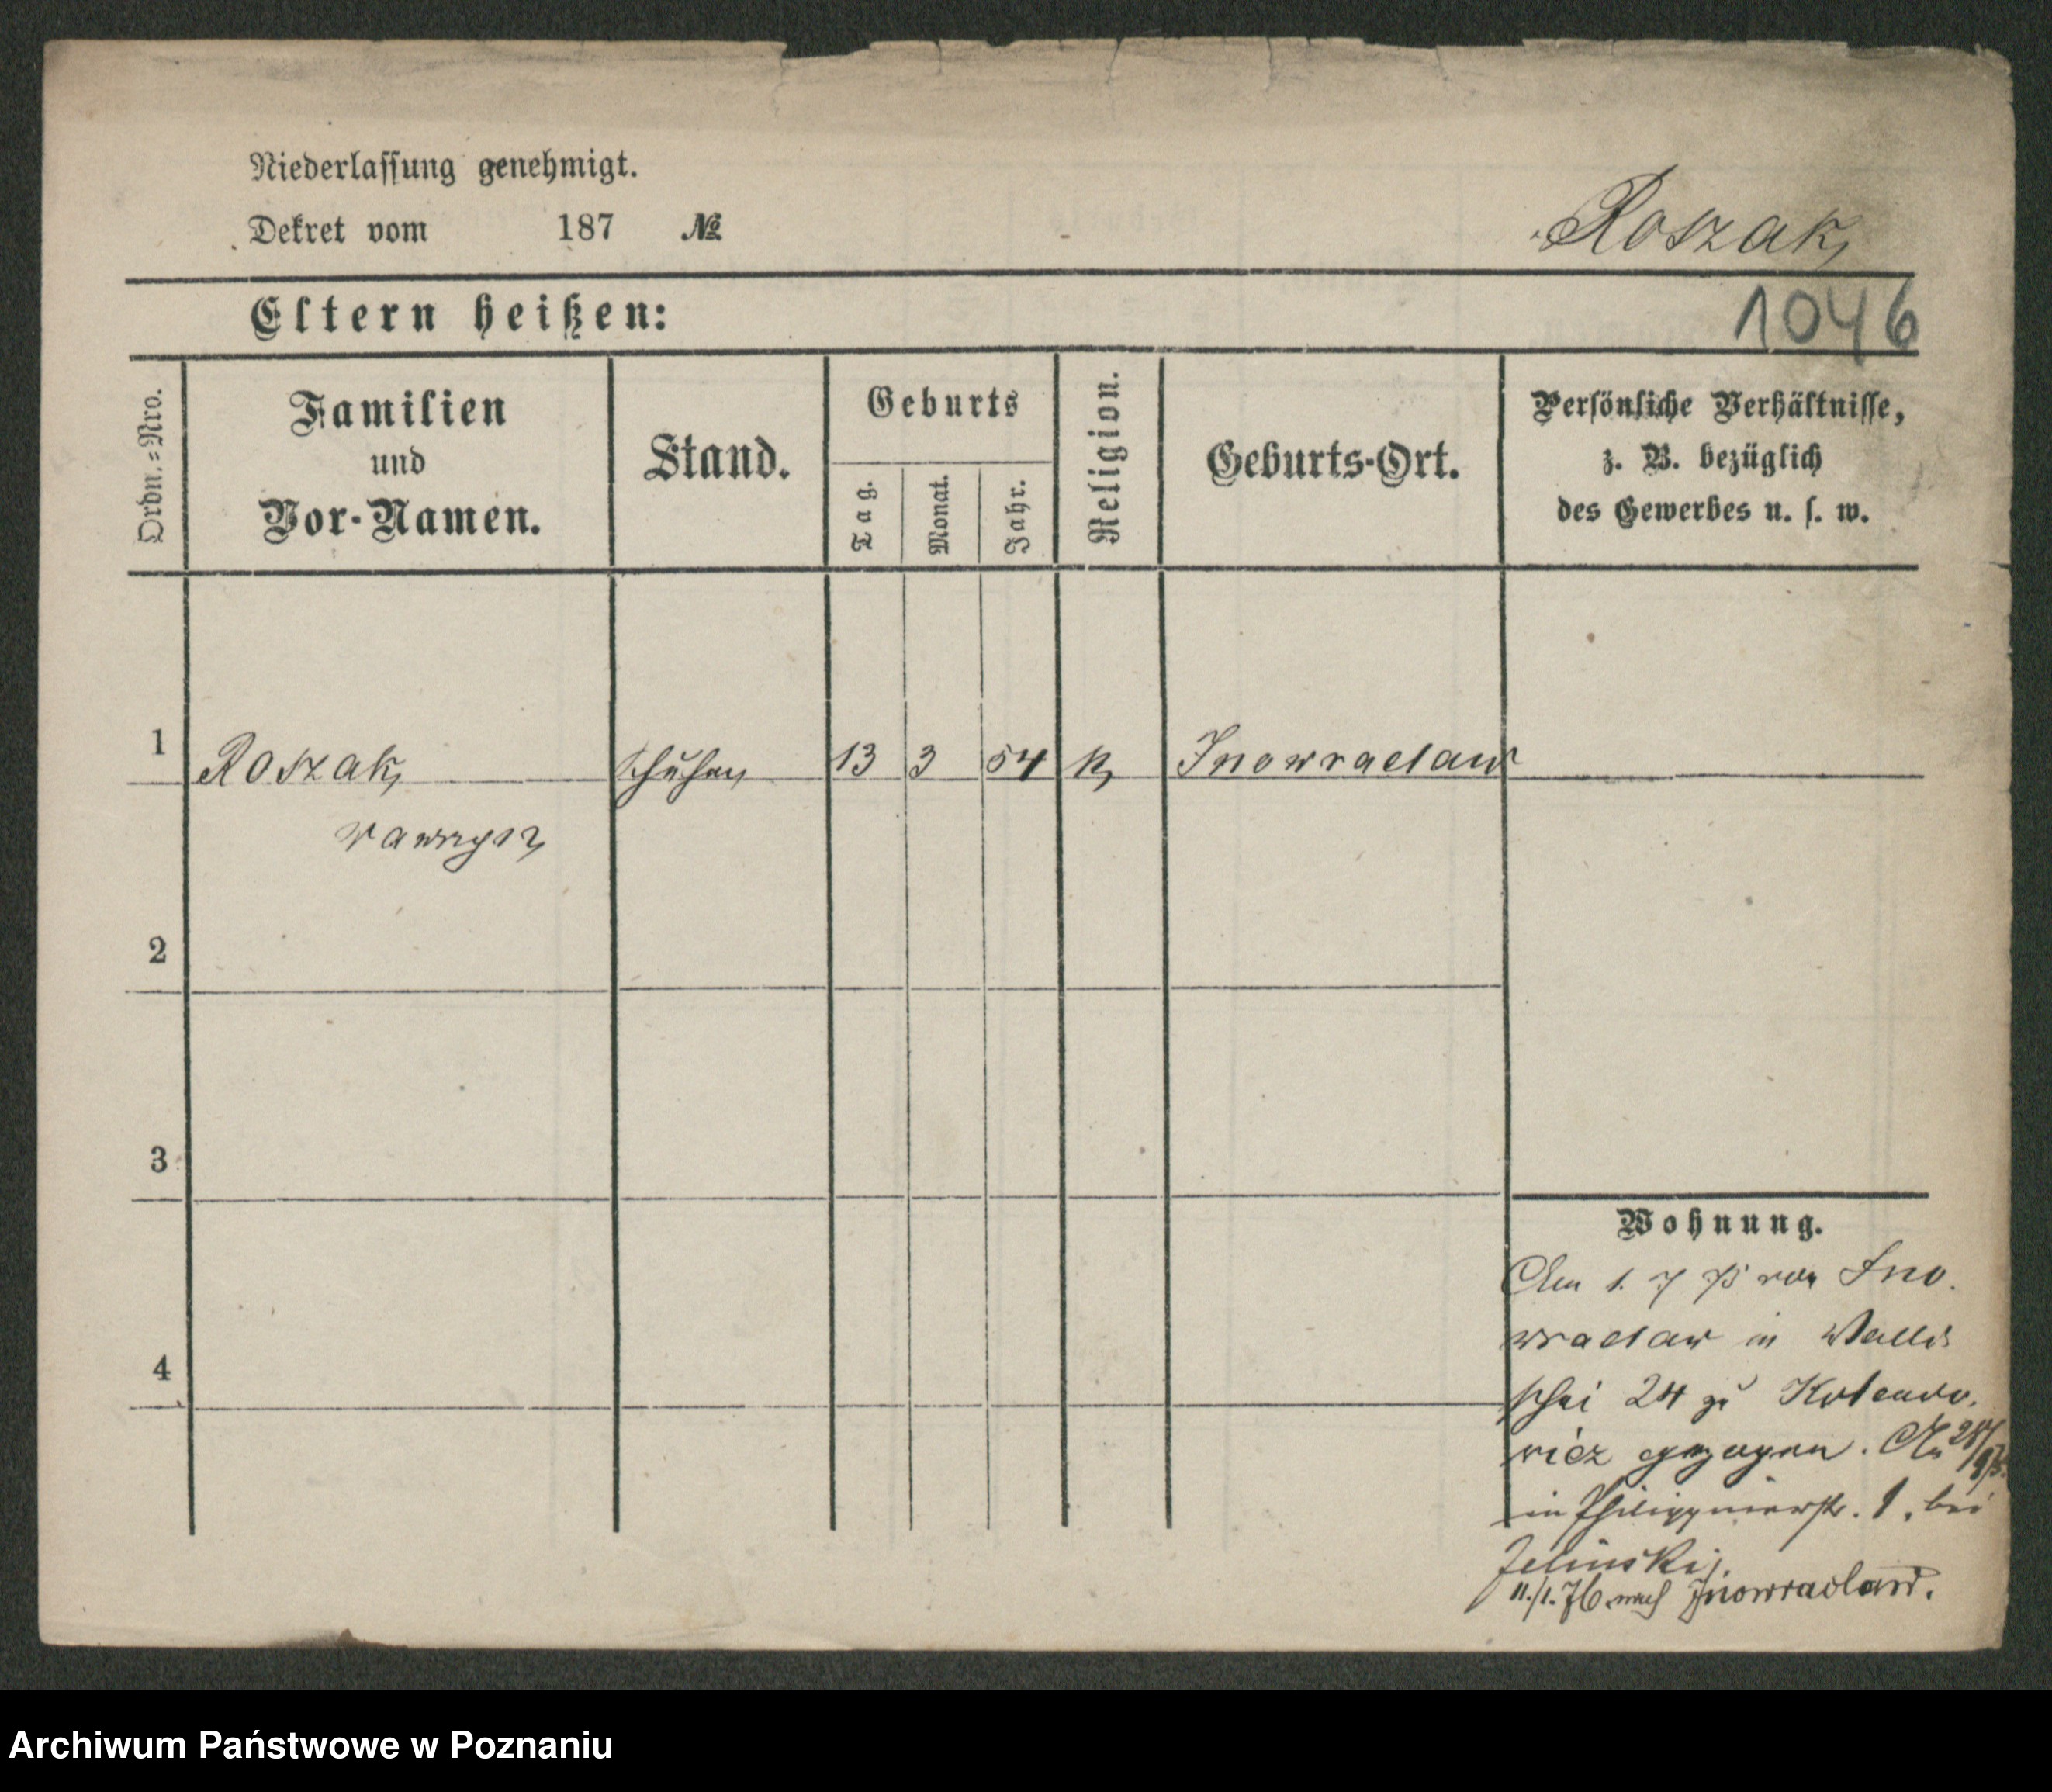 Niederlassung genehmigt.
Dekret vom 187 №
Roszak
Eltern heißen:
1046
Ordn.=Nro.
Familien
und
Vor-Namen.
Stand.
Geburts
Tag.
Monat.
Jahr.
Religion.
Geburts-Ort.
Persönliche Verhältnisse,
z. B. bezüglich
des Gewerbes u. s. w.
1 Roszak 13 3 54 k Inowraclaw
Wawrzyn
2
3
4
Wohnung.
Am 1. 7 75 von Ino.
wraclaw in Walli
schei 24 zu
wicz gezogen. Am 28/9 75
in Philippinerstr. 1, bei
Zelinski,
11./1. 76 nach Inowraclaw.
Archiwum Państwowe w Poznaniu